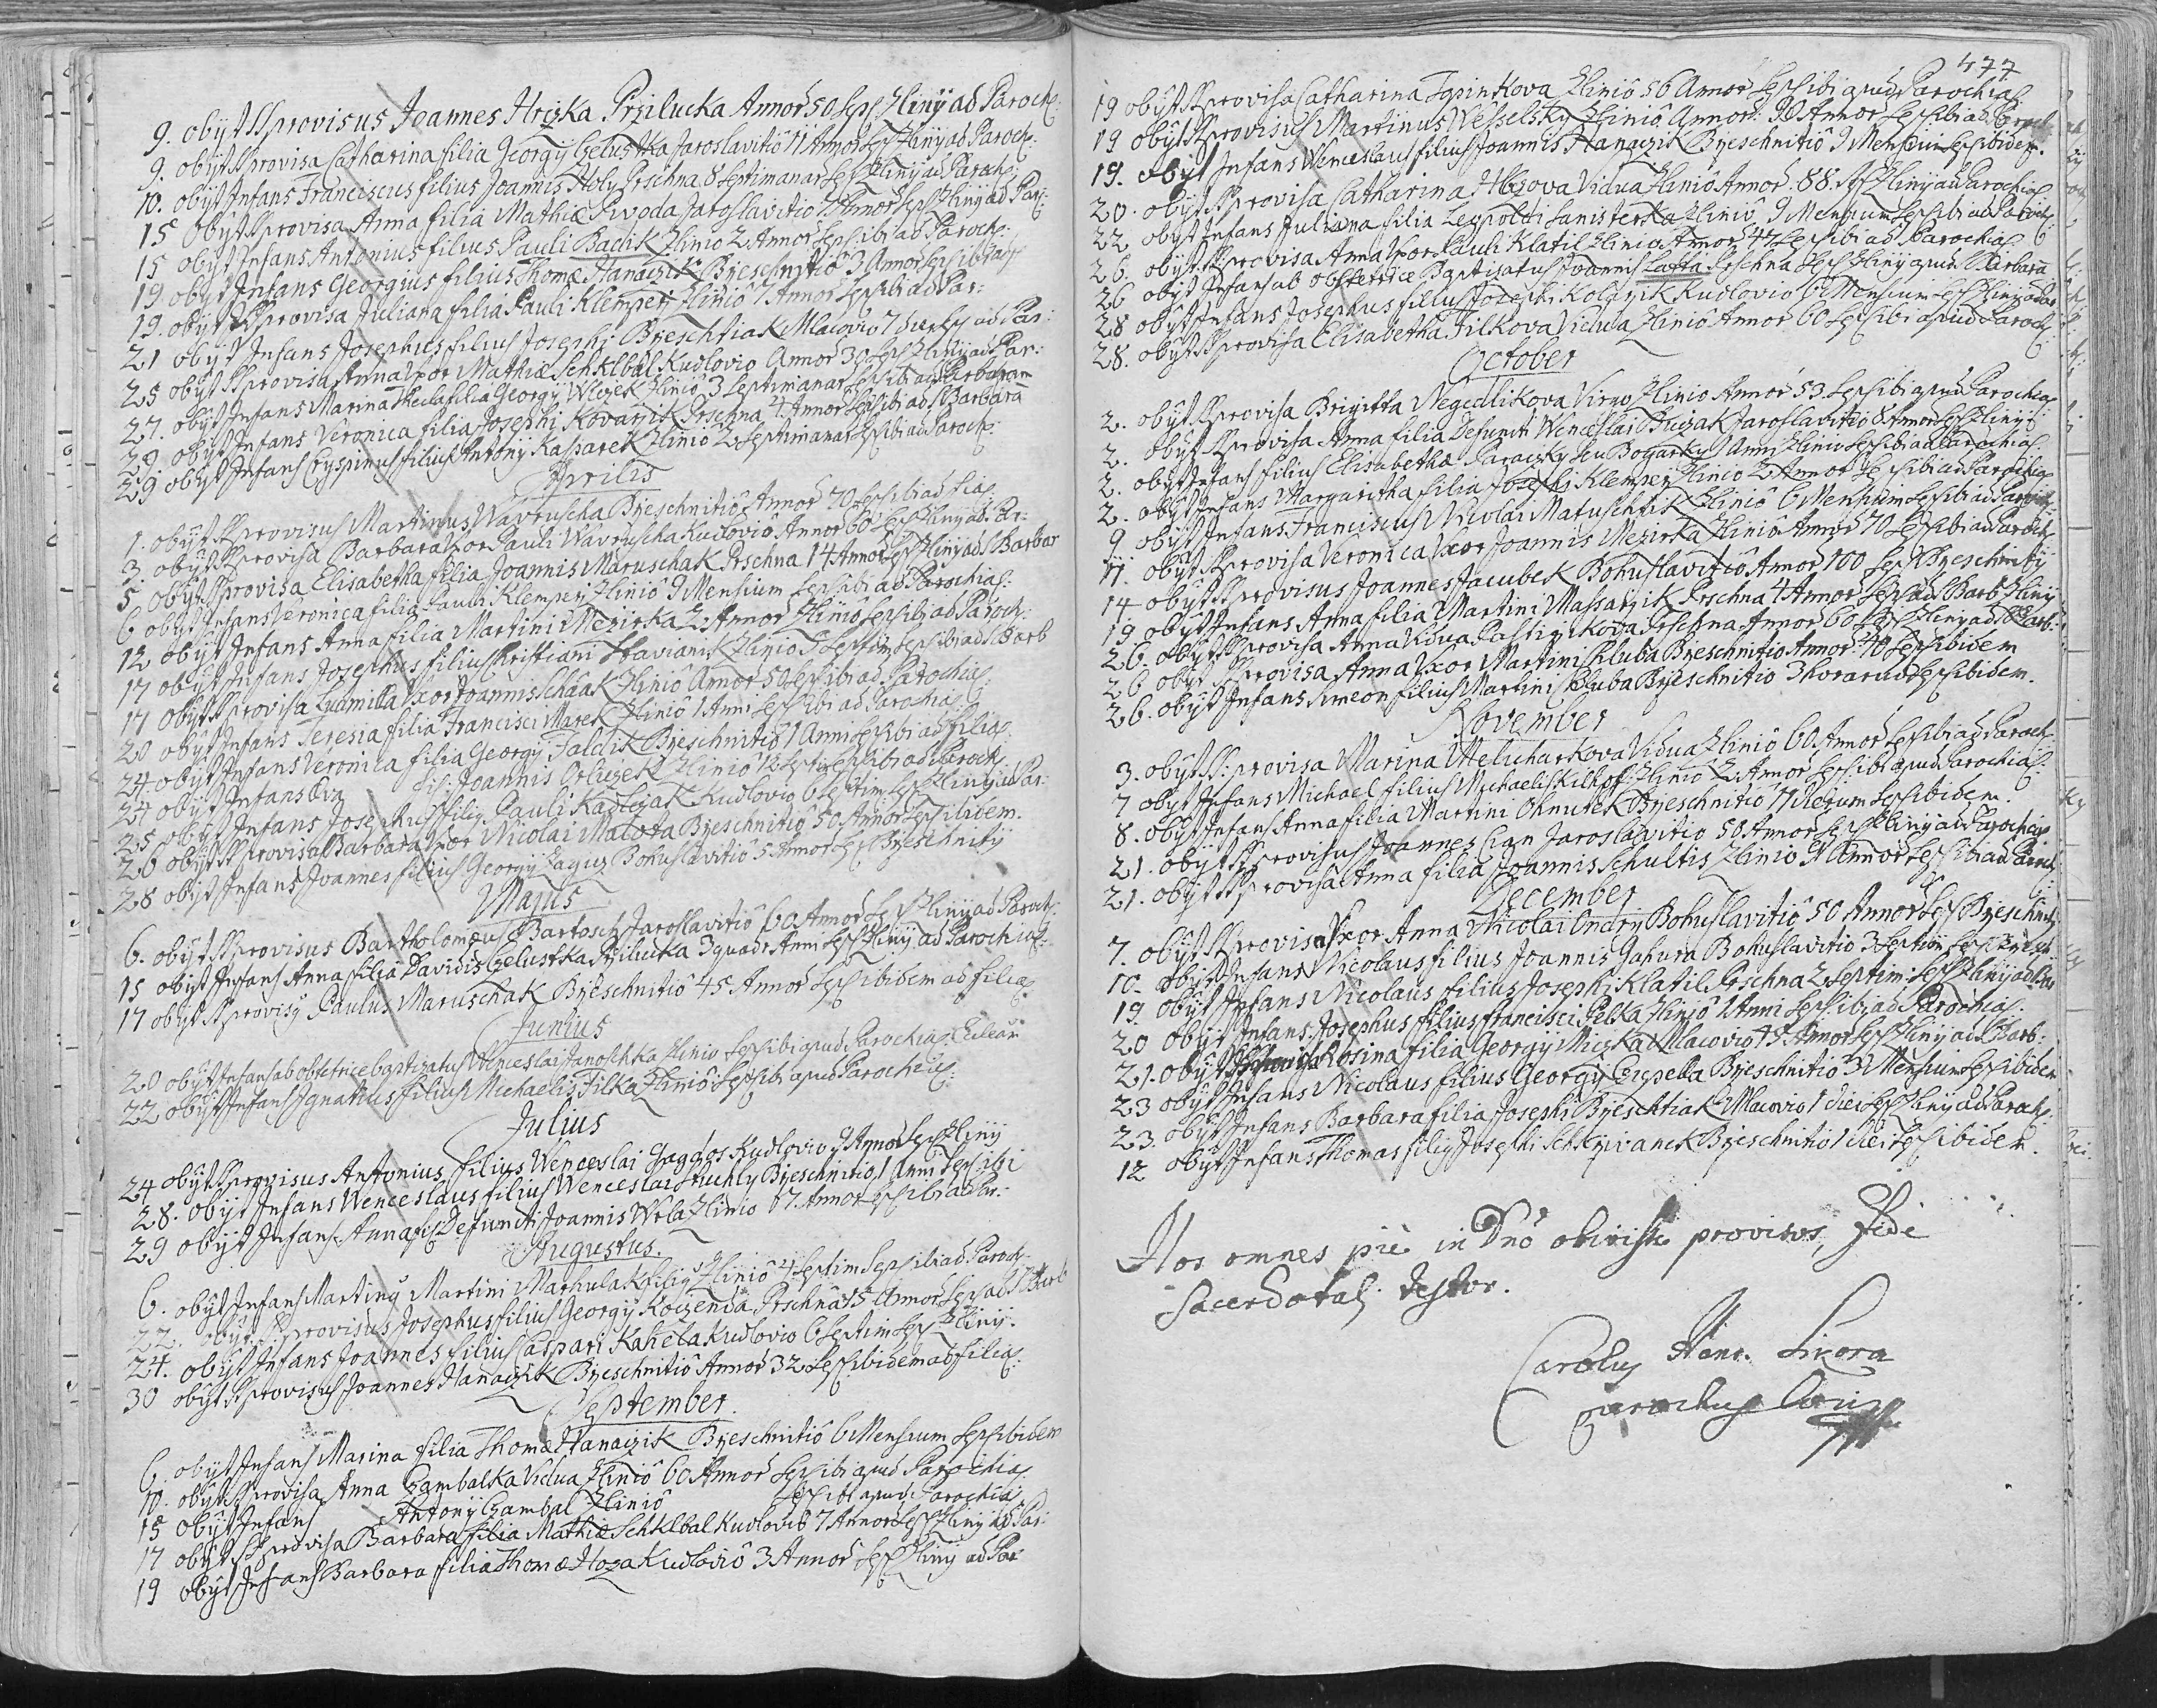 9. obÿt SSprovisus Joannes Hrczka Przilucka Annor 50 Sep Zlinÿ ad Paroch:
9. obÿt SSprovisa Catharina filia Georgÿ Czelustka Jaroslavitiô 11 Annor Sep Zlinÿ ad Paroch:
10. obÿt Infans Franciscus filius Joannis Holy Prschna 8 Septimanar Sep Zlinÿ ad Paroch:
15 obÿt SSprovisa Anna filia Mathiæ Pivoda Jaroslavitio 7 Annor Sep Zlinÿ ad Par:
15 obÿt Infans Antonius filius Pauli Baclik Zlinio 2 Annor Sep ibi ad Paroch:
19 obÿt Infans Georgius filius Thomæ Hanaczik Brzeschnitio 3 Annor Sep ibid
19. obÿt SSprovisa Juliana filia Pauli Klempey Zliniô 7 Annor Sep ibi ad Par:
21 obÿt Infans Josephus filius Josephi Brzeschtiak Mlacovio 7 Sep ad Par:
25 obÿt SSprovisa Anna Uxor Mathiæ Schklbal Kudlovio Annor 30 Sep Zlinÿ ad Par:
27. obÿt Infans Marina Thecla filia Georgÿ Wlczek Zliniô 3 Septimanar Sep ibi ad Barbaram
29 obÿt Infans Veronica filia Josephi Kovarzik Prschna 4 Annor Sep ibi ad S Barbara
29 obÿt Infans Cryspinus filius Antonÿ Kasparek Zlinio 2 Septimanar Sep ibi ad Paroch:
Aprilis
1. obÿt SSprovisus Martinus Wavruscha Brzeschnitiô Annor 70 Sep ibi ad filia
3. obÿt SSprovisa Barbara Uxor Pauli Wavruscha Kudlovio Annor 60 Sep Zlinÿ ad Par:
5 obÿt SSprovisa Elisabetha filia Joannis Maruschak Prschna 14 Annor Sep Zlinÿ ad S Barbar
6 obÿt Infans Veronica filia Pauli Klempey Zliniô 9 Mensium Sep ibi ad Parochia
12 obÿt Infans Anna filia Martini Mezirka 2 Annor Zlinio Sep ibi ad Paroch:
17 obÿt Infans Josephus filius Christiani Stavianik Zlinio 3 Septim Sep ibi ad S Barb
17 obÿt SSprovisa Ludmilla Uxor Joannis Schaak Zliniô Annor 50 Sep ibi ad Parochia
20 obÿt Infans Teresia filia Francisci Marek Zliniô 1 Anni Sep ibi ad Parochia
24. obÿt Infans Veronica filia Georgÿ Falclik Brzeschnitiô 1 Anni Sep ibi ad filia
24 obÿt Infans Eva fil: Joannis Orliczek Zliniô 12 Septi Sep ibi ad Paroch
25 obÿt Infans Josephus filiꝯ Pauli Kadleczak Kudlovio 6 Septim Sep Zlinÿ ad Par:
26 obÿt SSprovisa Barbara Uxor Nicolai Malota Brzeschnitiô 50 Annor Sep ibidem.
28 obÿt Infans Joannes filius Georgÿ Bohuslavitiô 5 Annor Sep Brzeschnitÿ
Majus
6. obÿt SSprovisus Bartholomeus Bartosch Jaroslavitiô 60 Annor Sep Zlinÿ ad Paroch:
15 obÿt Infans Anna filia Davidis Czelustka Przilucka 3 quadr Anni Sep Zlinÿ ad Parochia
17 obÿt SSprovisꝯ Paulus Maruschak Brzeschnitiô 45 Annor Sep ibidem ad filia
Junius
20 obÿt Infans ab obstetrice baptizatus Wenceslai Janoschka Zlinio Sep ibi apud Parochia
22 obÿt Infans Ignatius filius Michaelis Filka Zliniô Sep ibi apud Parochia
Julius
24 obÿt SSprovisus Antonius filius Wenceslai Gaggos Kudlovio 9 Annor Sep Zlinÿ
28. obÿt Infans Wenceslaus filius Wenceslai Stuchly Brzeschnitio 1 Anni Sep ibi
29 obÿt Infans Anna fil Defuncti Joannis Wrla Zlinio 7 Annor Sep ibi ad Par:
Augustus.
6. obÿt Infans Martinꝯ Martini Marhulak filiꝯ Zliniô 4 Septim Sep ibi ad Paroch
22. obÿt SSprovisus Josephus filius Georgÿ Koczenda Prschna 5 Annor Sep ad S Barb
24. obÿt Infans Joannes filius Caspari Kahela Kudlovio 6 Septim Sep Zlinÿ.
30 obÿt SSprovisus Joannes Hanaczik Brzeschnitiô Annor 32 Sep ibidem ad filia
September.
6. obÿt Infans Marina filia Thomæ Hanaczik Brzeschnitiô 6 Mensium Sep ibidem
10. obÿt SSprovisa Anna Gambalka Vidua Zliniô 60 Annor Sep ibi apud Parochia
15 obÿt Infans Antonÿ Gambal Zliniô Sep ibi apud Parochia
17 obÿt SSprovisa Barbara filia Mathiæ Schklbal Kudlovio 7 Annor Sep Zlinÿ ad Par:
19 obÿt Infans Barbara filia Thomæ Hoza Kudloviô 3 Annor Sep Zlinÿ ad Par
477
19 obÿt SSprovisa Catharina Zliniô 56 Annor Sep ibi apud Parochia
19 obÿt SSprovisus Martinus Wesselsky Zliniô Annor: 90 Annor Sep ibi ad Paroch
19. obÿt Infans Wenceslaus filius Joannis Hanaczik Brzeschnitiô 9 Mensium Sep ibidem.
20. obÿt SSprovisa Catharina Vidua Zliniô Annor. 88. Sep Zlinÿ ad Parochia
22 obÿt Infans Juliana filia Leopoldi Zliniô 9 Mensium Sep ibi ad Paroch
26. obÿt SSprovisa Anna Uxor Pauli Klatil Zlinio Annor 47 Sep ibi ad Parochia
26 obÿt Infans ab obstetrice Baptisatus Joannis Lasta Prschna Sep Zlinÿ apud S Barbara
28 obÿt Infans Josephus filius Josephi Kolarzik Kudlovio 6 Mensium Sep Zlinÿ ad Par
28. obÿt SSprovisa Elisabetha Filkova Vidua Zliniô Annor 60 Sep ibi apud Paroch
October
2. obÿt SSprovisa Brigitta Negedlikova Virgo Zlinio Annor 53 Sep ibi apud Parochia
2. obÿt SSprovisa Anna filia Defuncti Wenceslai Jaroslavitiô 8 Annor Sep Zlinÿ
2. obÿt Infans filius Elisabethæ seu Bogarky 1 Anni Zlinio Sep ibi ad Parochia
2. obÿt Infans Margaritha filia Josephi Klempey Zlinio 2 Annor Sep ibi ad Parochia
9 obÿt Infans Franciscus Nicolai Matuschtik Zliniô 6 Mensium Sep ibi ad Paroch
11. obÿt SSprovisa Veronica Uxor Joannis Mezirka Zliniô Annor 70 Sep ibi ad Paroch
14 obÿt SSprovisus Joannes Jacubek Bohuslavitiô Annor 100 Sep Brzeschnitÿ
19 obÿt Infans Anna filia Martini Massarzik Prschna 4 Annor Sep ad S Barb Zlinÿ
26. obÿt SSprovisa Anna Vidua Prschna Annor 60 Sep Zlinÿ ad S Barb:
26 obÿt SSprovisa Anna Uxor Martini Chluba Brzeschnitio Annor 40 Sep ibidem
26. obÿt Infans Simeon filius Martini Chluba Brzeschnitio 3 horarum Sep ibidem.
November
3. obÿt SS: provisa Marina Melucharkova Vidua Zliniô 60 Annor Sep ibi ad Paroch
7 obÿt Infans Michael filius Michaelis Kilhof Zliniô 2 Annor Sep ibi apud Parochia
8. obÿt Infans Anna filia Martini Ohnutek Brzeschnitiô 11 Dierum Sep ibidem.
21. obÿt SSprovisus Joannes Cian Jaroslavitio 50 Annor Sep Zlinÿ ad Parochia
21. obÿt SSprovisa Anna filia Joannis Schultis Zlinio Annor Sep ibi ad Paroch:
December
7. obÿt SSprovisa Uxor Anna Nicolai Ondry Bohuslavitiô 50 Annor Sep Brzeschnitÿ
10. obÿt Infans Nicolaus filius Joannis Gahura Bohuslavitio 3 Septim Sep Brzesch
19 obÿt Infans Nicolaus filius Josephi Klatil Prschna 2 Septim: Sep Zlinÿ ad Bar
20 obÿt Infans: Josephus filius Francisci Pelka Zlinio 1 Anni Sep ibi ad Parochia
21. obÿt SSprovisa Rosina filia Georgÿ Miczka Mlacovio Annor Sep Zlinÿ ad S Barb:
23 obÿt Infans Nicolaus filius Georgÿ Brzeschnitiô 3 Mensium Sep ibidem
23. obÿt Infans Barbara filia Josephi Brzeschtiak Mlacovio 1 diei Sep Zlinÿ ad Paroch
12 obÿt Infans Thomas filiꝯ Josephi Schrzivanek Brzeschnitio 1 diei Sep ibidem.
Hos omnes piè in Dno obivisse provisos, fide
Sacerdotali testor.
Carolus Henr. Sikora
Parochus